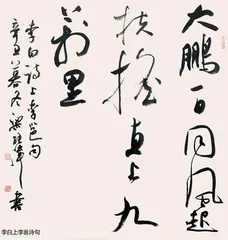 大鹏一日同风起
扶摇直上九
万里
李白诗上李邕句
辛丑暮冬
书
李白上李邕诗句